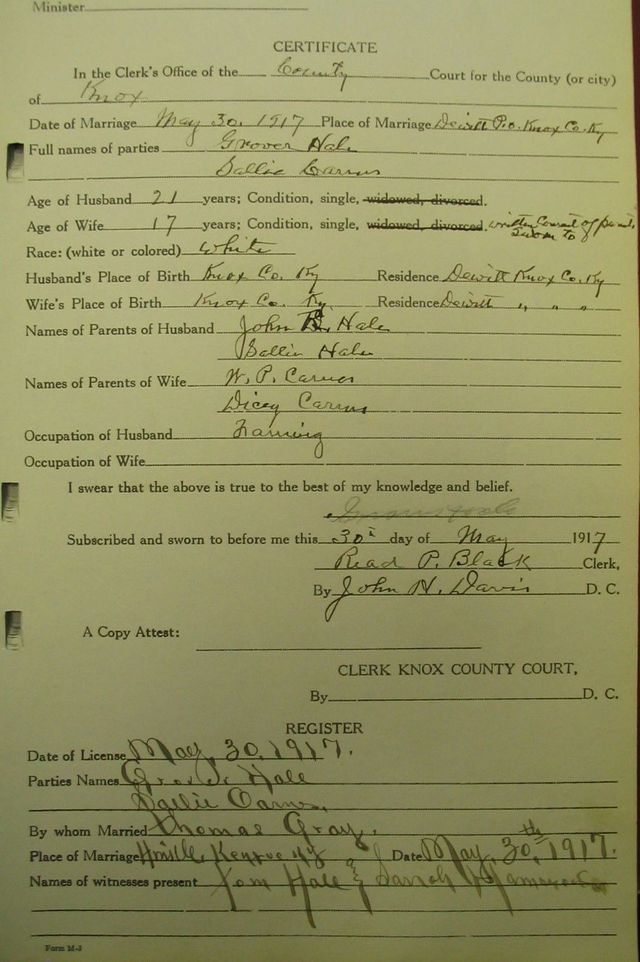 Minister
CERTIFICATE
In the Clerk's Office of the County Court for the County (or city)
of Knox
Date of Marriage May 30, 1917 Place of Marriage Dewitt P.O. Knox Co. Ky
Full names of parties Grover Hale
Sallie Carnes
Age of Husband 21 years; Condition, single, widowed, divorced.
Age of Wife 17 years; Condition, single, widowed, divorced. written Consent of
Sworn to
Race: (white or colored) White
Husband's Place of Birth Knox Co. Ky Residence Dewitt Knox Co. Ky
Wife's Place of Birth Knox Co. Ky. Residence Dewitt " " "
Names of Parents of Husband John B. Hale
Sallie Hale
Names of Parents of Wife W. P. Carnes
Dicey Carnes
Occupation of Husband Farming
Occupation of Wife
I swear that the above is true to the best of my knowledge and belief.
Subscribed and sworn to before me this 30 day of May 1917
Read P. Black Clerk,
By John H. Davis D. C.
A Copy Attest:
CLERK KNOX COUNTY COURT,
By D. C.
REGISTER
Date of License May, 30, 1917.
Parties Names Hale
Sallie Carnes,
By whom Married Thomas Gray.
Place of Marriage Date May, 30th, 1917.
Names of witnesses present Tom Hale & Sarah
Form M-3